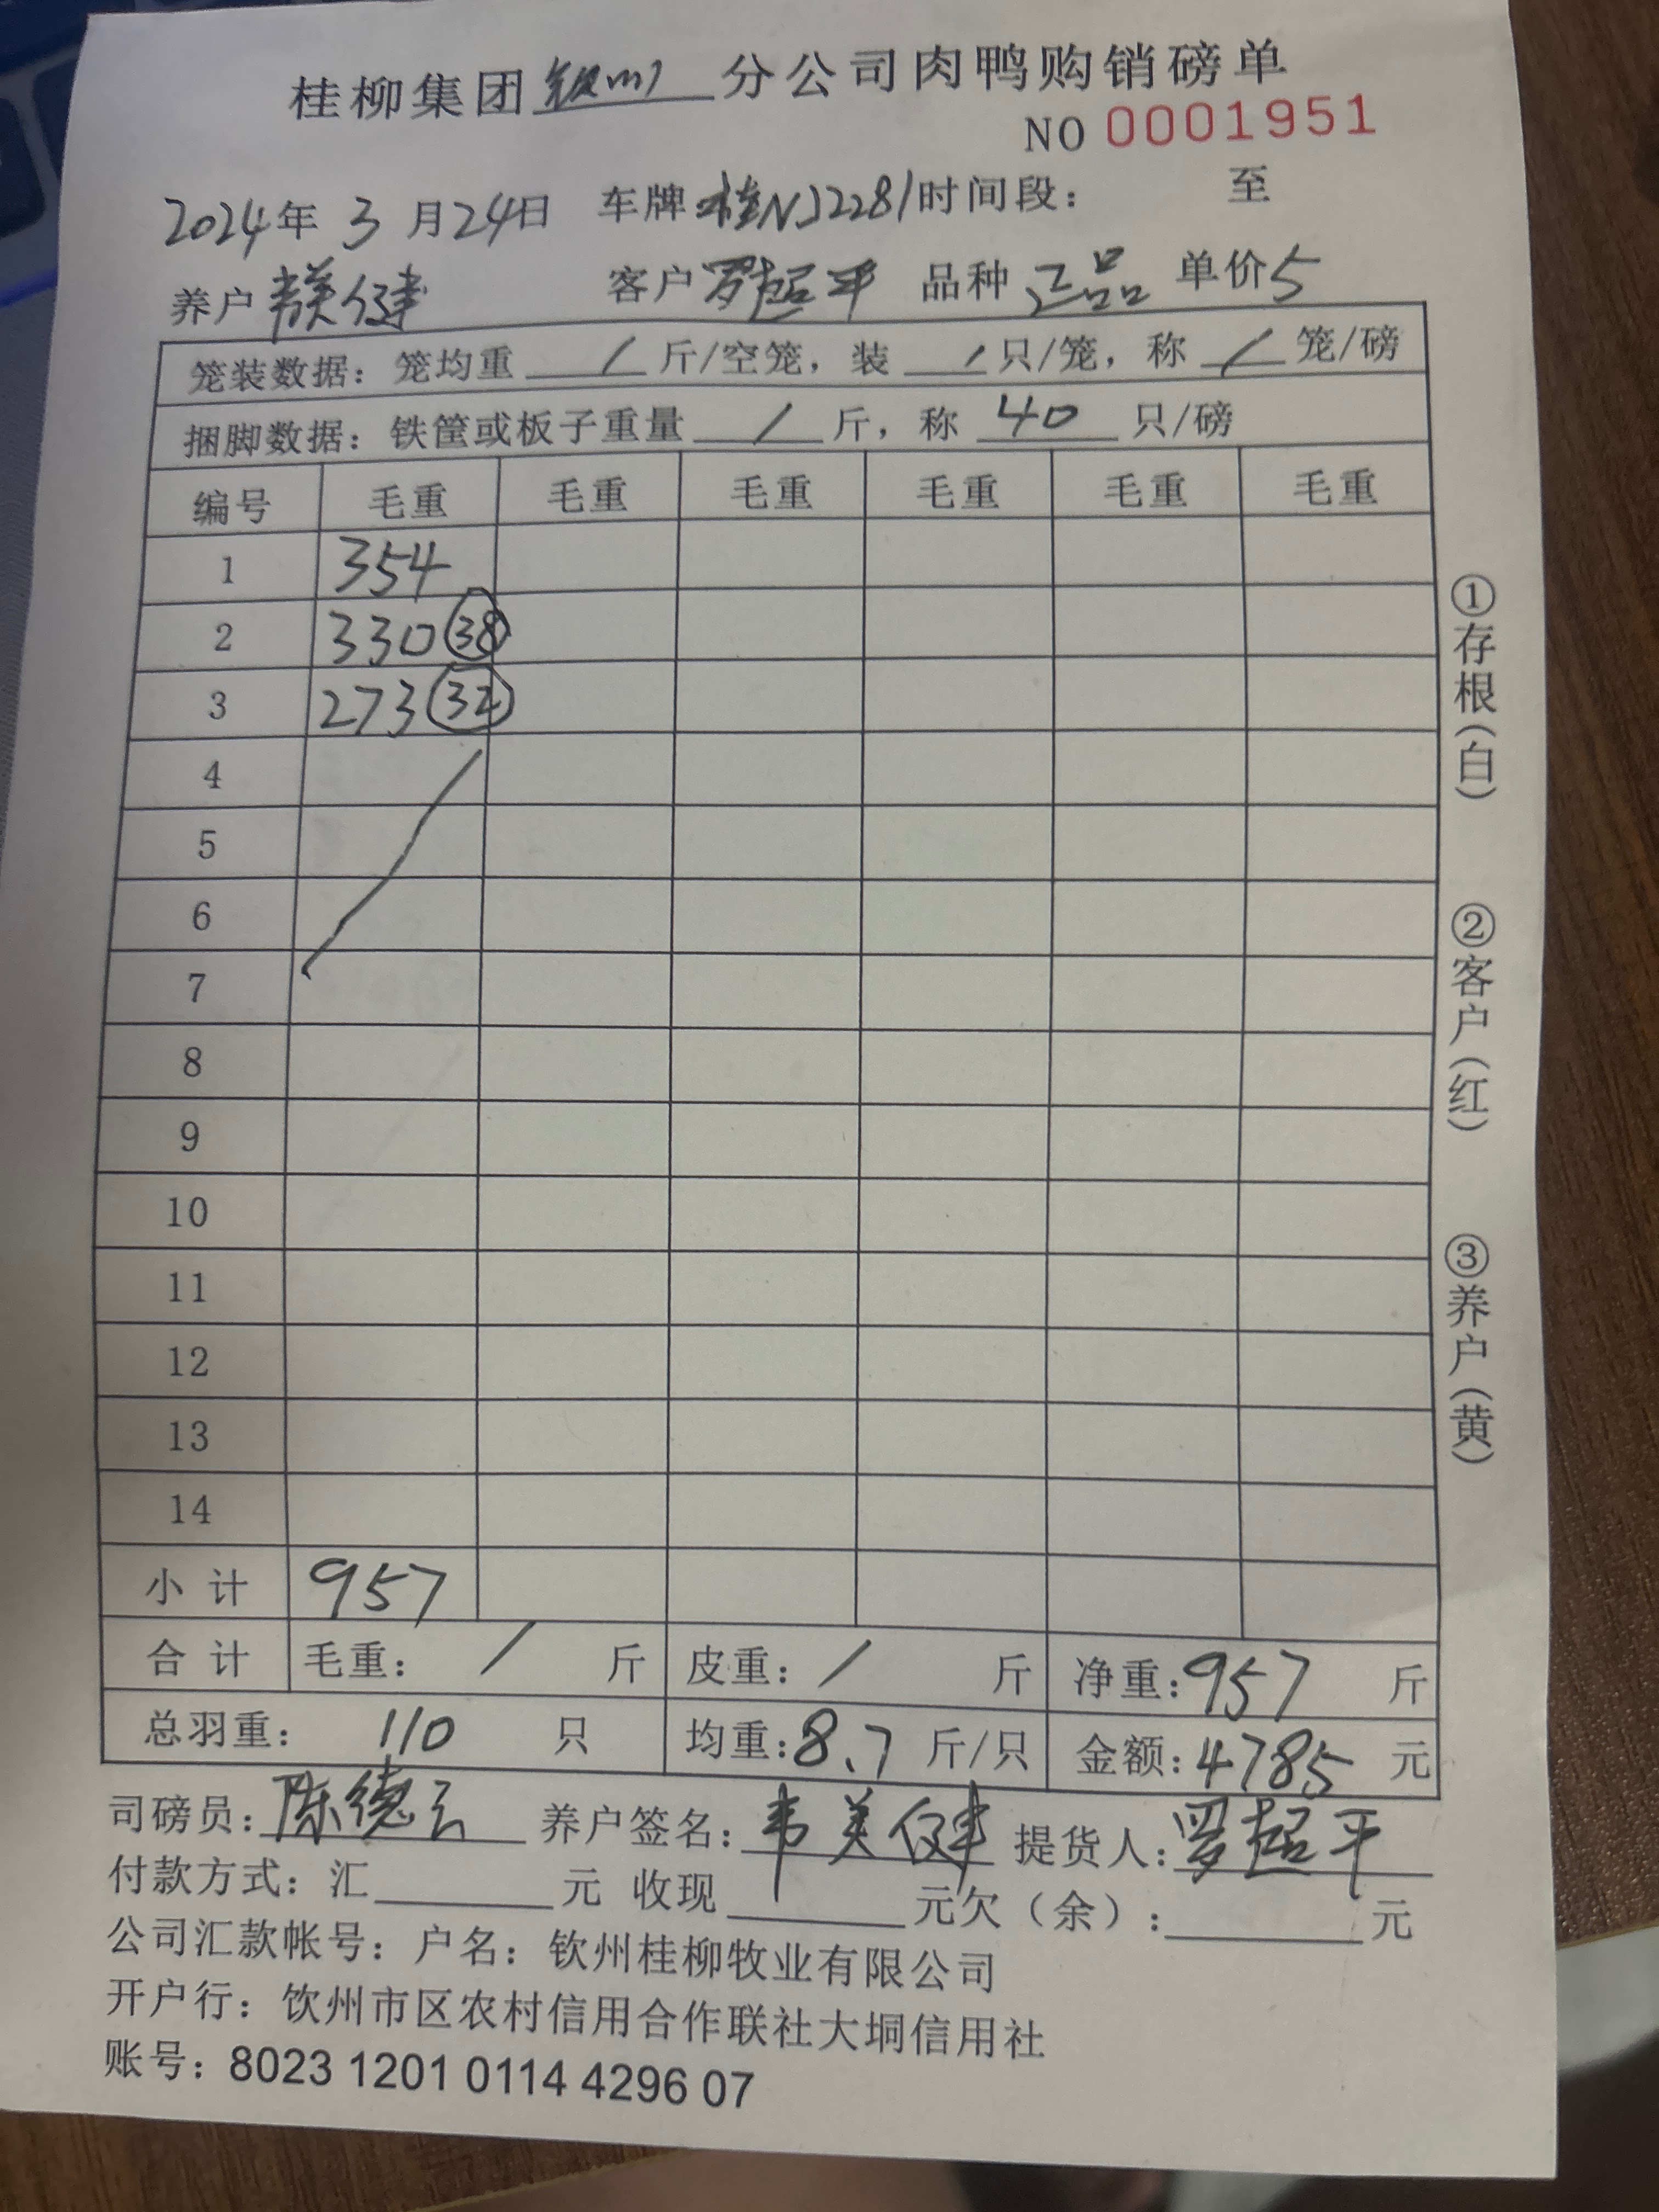 桂柳集团钦州分公司肉鸭购销磅单
NO 0001951
2024年 3 月24日 车牌:桂NJ2281时间段: 至
养户 韦美健 客户 罗超平 品种 正品 单价5
笼装数据:笼均重 / 斤/空笼,装 / 只/笼,称 / 笼/磅
捆脚数据:铁筐或板子重量 / 斤,称 40 只/磅
编号 毛重 毛重 毛重 毛重 毛重 毛重
1 354
2 330 38
3 273 32
4
5
6
7
8
9
10
11
12
13
14
小计 957
合计 毛重: / 斤 皮重: / 斤 净重:957 斤
总羽重: 110 只 均重:8.7 斤/只 金额:4785 元
司磅员:陈德云 养户签名:韦美健 提货人:罗超平
付款方式:汇 元 收现 元欠(余): 元
公司汇款帐号:户名:钦州桂柳牧业有限公司
开户行:饮州市区农村信用合作联社大垌信用社
账号:8023 1201 0114 4296 07
①存根(白) ②客户(红) ③养户(黄)